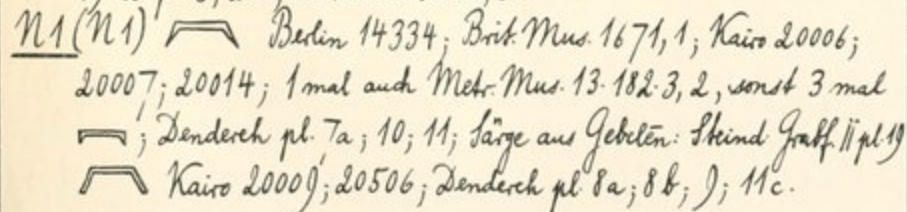 N1 (N1) 𓇯 Berlin 14334; Brit. Mus. 1671,1; Kairo 20006;
20007; 20014; 1 mal auch Metr. Mus. 13.182.3, 2, sonst 3 mal
𓇯; Dendereh pl. 7a; 10; 11; Särge aus Gebelên: Steind. Grabf. II pl. 19
𓇯 Kairo 20009; 20506; Dendereh pl. 8a; 8b; 9; 11c.